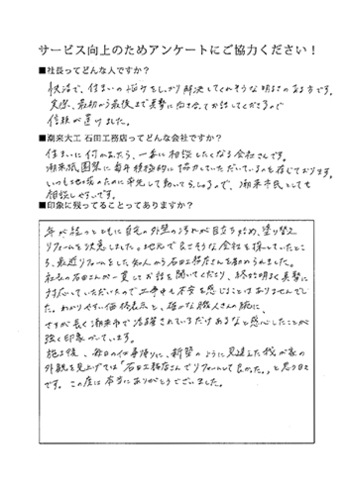 サービス向上のためアンケートにご協力ください!
■社長ってどんな人ですか?
快活で、住まいの悩みをしっかり解決してくれそうな明るさのある方です。
実際、最初から最後まで真摯に向き合ってお話してくださるので
信頼が置けました。
■潮来大工 石田工務店ってどんな会社ですか?
住まいに何かあったら、一番に相談したくなる会社さんです。
潮来祇園祭に毎年積極的に協力していただいているのを存じております。
いつも地域のために率先して動いてらっしゃるので、潮来市民としても
相談しやすいです。
■印象に残ってることってありますか?
年が経つとともに自宅の外壁の汚れが目立ち始め、塗り替え
リフォームを決意しました。地元で良さそうな会社を探していたとこ
ろ、最近リフォームをした知人から石田工務店さんを勧められました。
社長の石田さんが一貫してお話を聞いてくださり、終始明るく真摯に
対応していただいたので工事中も不安を感じることはありませんでし
た。わかりやすい価格表示と、確かな職人さんの腕に、
さすが長く潮来市で活躍されているだけあるなと感心したことが
強く印象がのこています。
施工後、毎日の仕事帰りに、新築のように見違えた我が家の
外観を見上げては「石田工務店さんでリフォームして良かった。」と思う日々
です。この度は本当にありがとうございました。